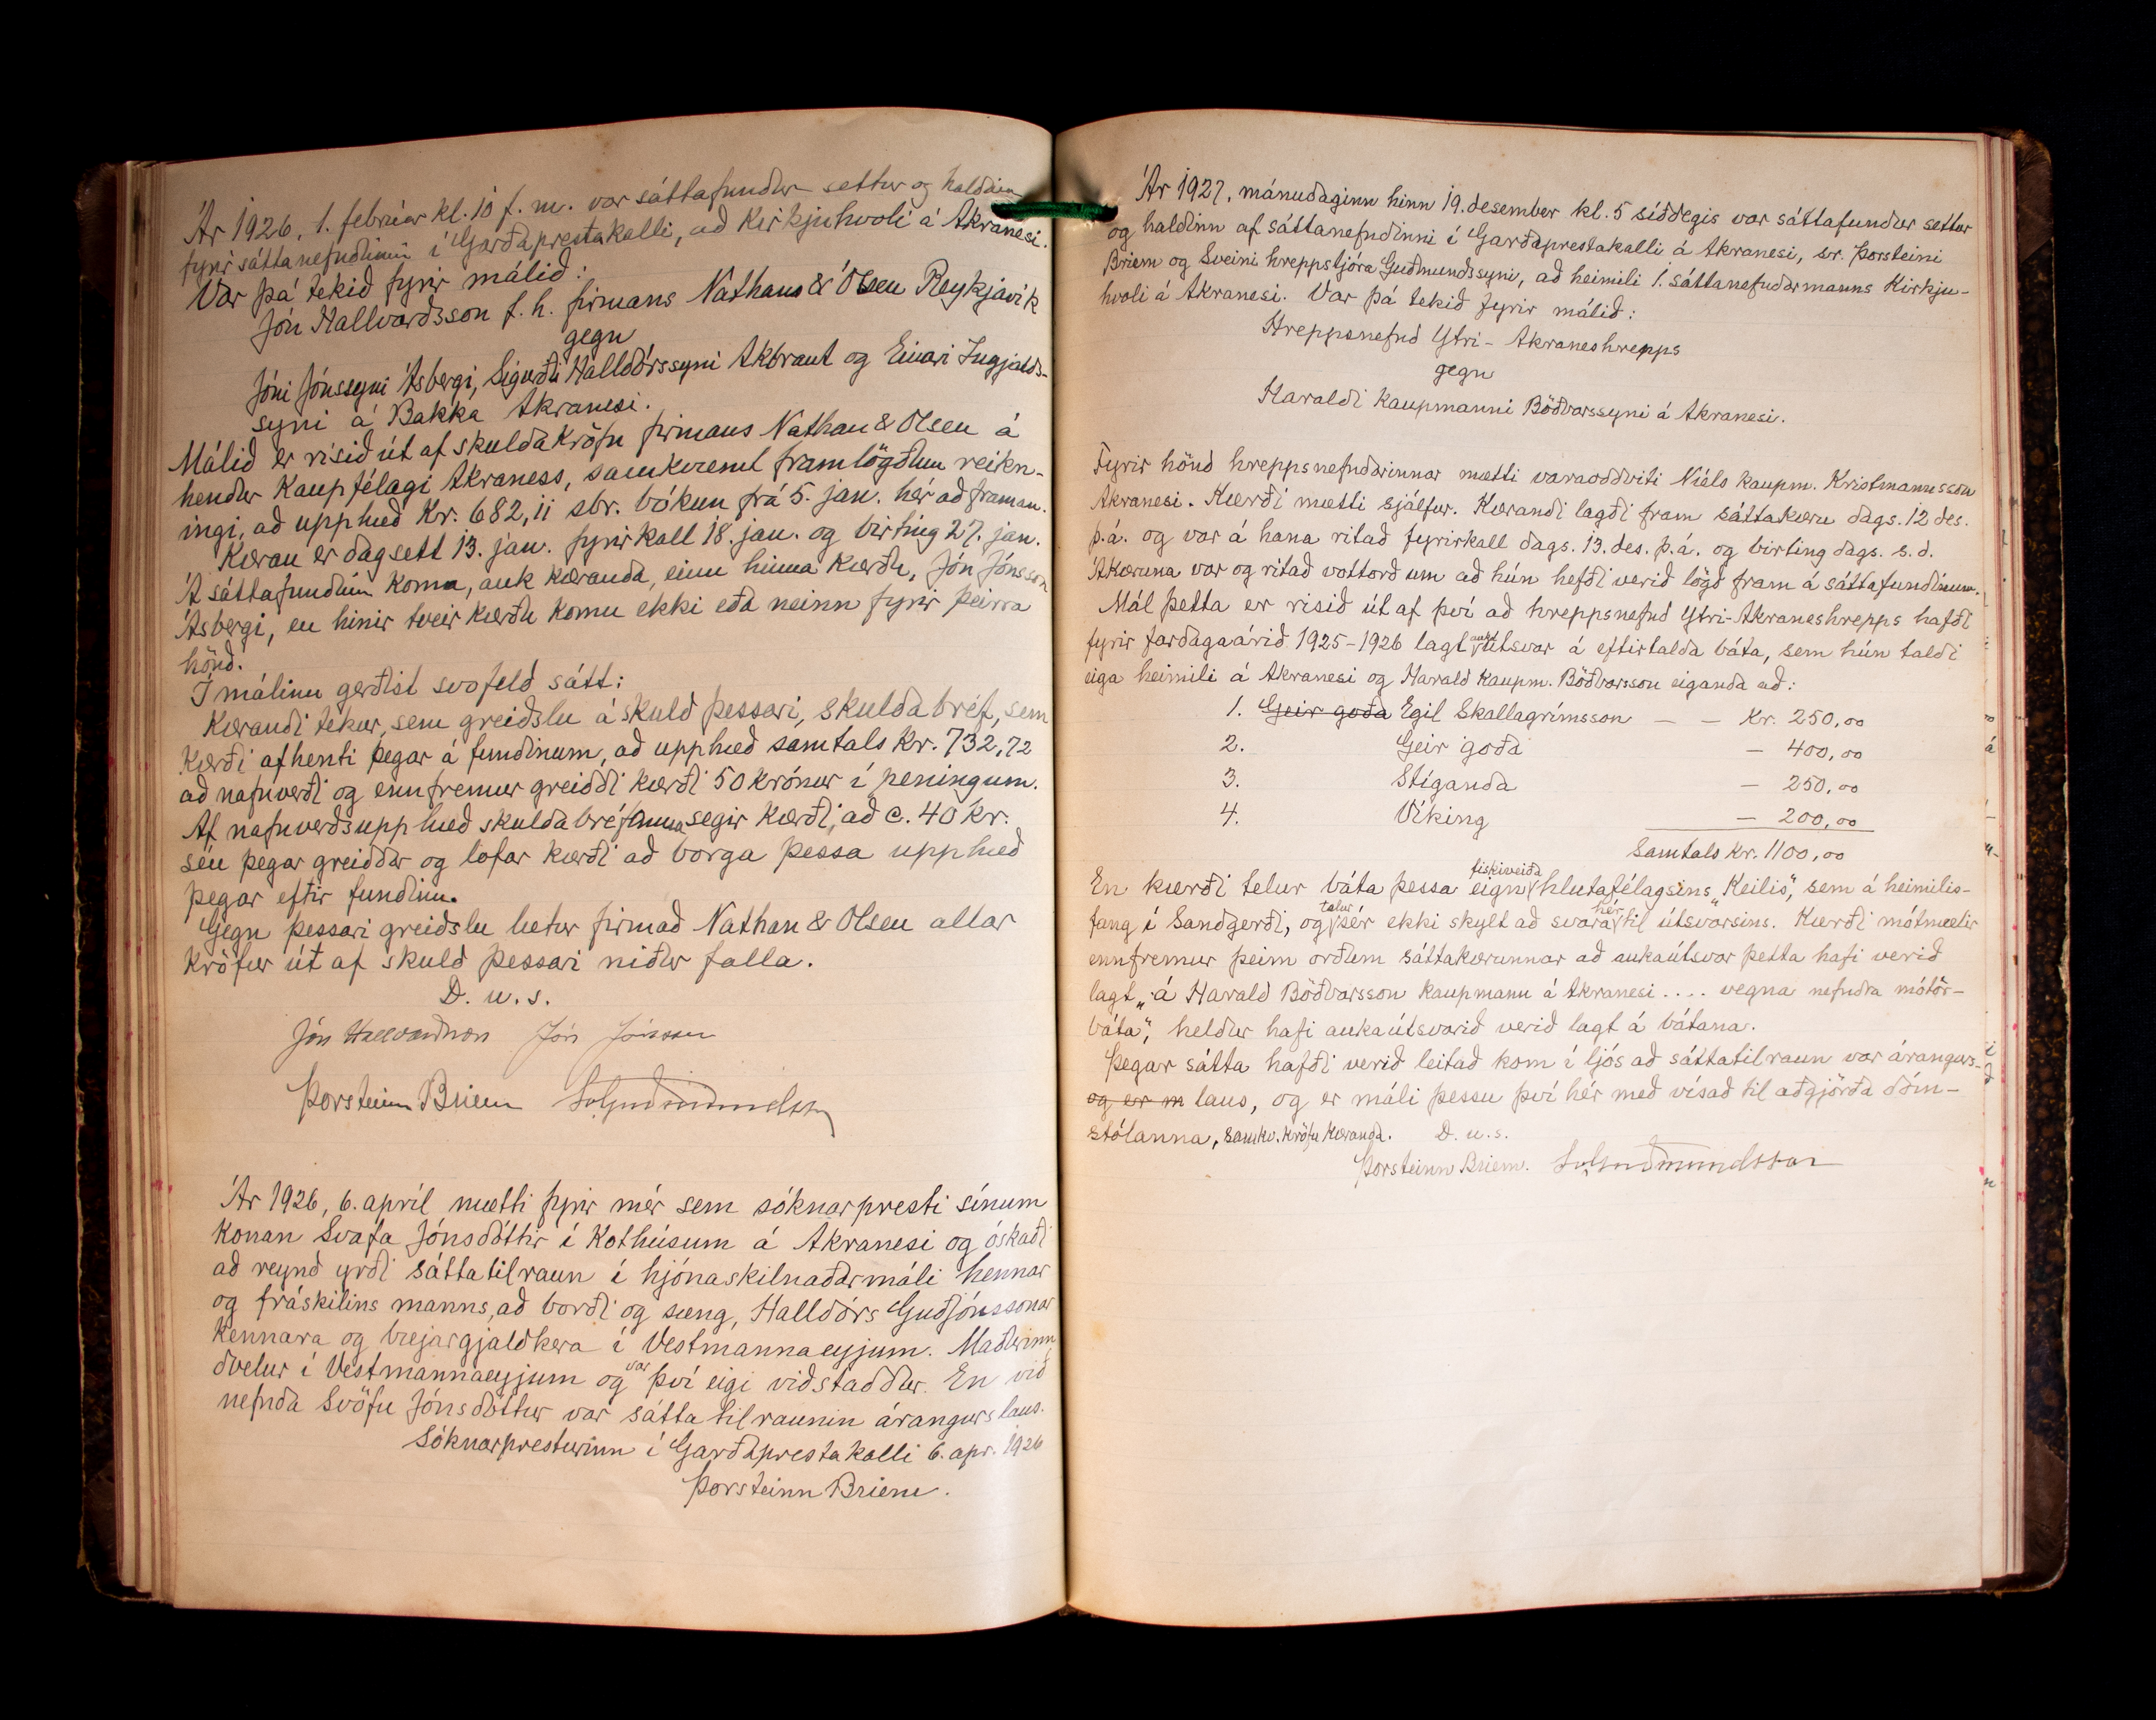 Ár 1926, 1. febrúar kl. 10 f. m. var sáttafundur settur og haldinn
fyrir sáttanefndinni í Garðaprestakalli, að Kirkjuhvoli á Akranesi.
Var þá tekið fyrir málið:
Jón Hallvarðsson f. h. firmans Nathans & Olsen Reykjavík
gegn
Jóni Jónssyni Ásbergi, Sigurði Halldórssyni Akbraut og Einari Ingjalds-
syni á Bakka Akranesi.
Málið er risið út af skuldakröfu firmans Nathan & Olsen á
hendur Kaupfélagi Akraness, samkvæmt framlögðum reikn-
ingi, að upphæð Kr. 682,11 sbr. bókun frá 5. jan. hér að framan.
Kæran er dagsett 13. jan. fyrirkall 18. jan. og birting 27. jan.
Á sáttafundinn koma, auk kæranda, einn hinna kærðu, Jón Jónsson
Ásbergi, en hinir tveir kærðu komu ekki eða neinn fyrir þeirra
hönd.
Í málinu gerðist svofeld sátt:
Kærandi tekur, sem greiðslu á skuld þessari, skuldabréf, sem
kærði afhenti þegar á fundinum, að upphæð samtals Kr. 732,72
að nafnverði og ennfremur greiddi kærði 50 krónur í peningum.
Af nafnverðsupphæð skuldabréfanna segir kærði, að c. 40 kr.
séu þegar greiddar og lofar kærði að borga þessa upphæð
þegar eftir fundinn.
Gegn þessari greiðslu lætur firmað Nathan & Olsen allar
kröfur út af skuld þessari niður falla.
D. u. s.
Jón Hallvarðsson Jón Jónsson
Þorsteinn Briem Sv. Guðmundsson
Ár 1926, 6. apríl mætti fyrir mér sem sóknarpresti sínum
konan Svafa Jónsdóttir í Kothúsum á Akranesi og óskaði
að reynd yrði sáttatilraun í hjónaskilnaðarmáli hennar
og fráskilins manns, að borði og sæng, Halldórs Guðjónssonar
kennara og bæjargjaldkera í Vestmannaeyjum. Maðurinn
dvelur í Vestmannaeyjum og var því eigi viðstaddur. En við
nefnda Svöfu Jónsdóttur var sáttatilraunin árangurslaus.
Sóknarpresturinn í Garðaprestakalli 6. apr. 1926
Þorsteinn Briem.
Ár 1927, mánudaginn hinn 19. desember kl. 5 síðdegis var sáttafundur settur
og haldinn af sáttanefndinni í Garðaprestakalli á Akranesi, sr. Þorsteini
Briem og Sveini hreppstjóra Guðmundssyni, að heimili 1. sáttanefndarmanns Kirkju-
hvoli á Akranesi. Var þá tekið fyrir málið:
Hreppsnefnd Ytri-Akraneshrepps
gegn
Haraldi kaupmanni Böðvarssyni á Akranesi.
Fyrir hönd hreppsnefndarinnar mætti varaoddviti Níels kaupm. Kristmannsson
Akranesi. Kærði mætti sjálfur. Kærandi lagði fram sáttakæru dags. 12 des.
þ.á. og var á hana ritað fyrirkall dags. 13. des. þ.á. og birting dags. s.d.
Á kæruna var og ritað vottorð um að hún hefði verið lögð fram á sáttafundinum.
Mál þetta er risið út af því að hreppsnefnd Ytri-Akraneshrepps hafði
fyrir fardagaárið 1925-1926 lagt aukaútsvar á eftirtalda báta, sem hún taldi
eiga heimili á Akranesi og Harald kaupm. Böðvarsson eiganda að:
1. Geir goða Egil Skallagrímsson — — Kr. 250,00
2. Geir goða — 400,00
3. Stíganda — 250,00
4. Víking — 200,00
Samtals Kr. 1100,00
En kærði telur báta þessa eign fiskiveiða hlutafélagsins „Keilis“, sem á heimilis-
fang í Sandgerði, og telur sér ekki skylt að svara hér til útsvarsins. Kærði mótmælir
ennfremur þeim orðum sáttakærunnar að aukaútsvar þetta hafi verið
lagt „á Harald Böðvarsson kaupmann á Akranesi .... vegna nefndra mótór-
báta“, heldur hafi aukaútsvarið verið lagt á bátana.
Þegar sátta hafði verið leitað kom í ljós að sáttatilraun var árangurs-
og er m laus, og er máli þessu því hér með vísað til aðgjörða dóm-
stólanna, samkv. kröfu kæranda. D. u. s.
Þorsteinn Briem. Sv. Guðmundsson